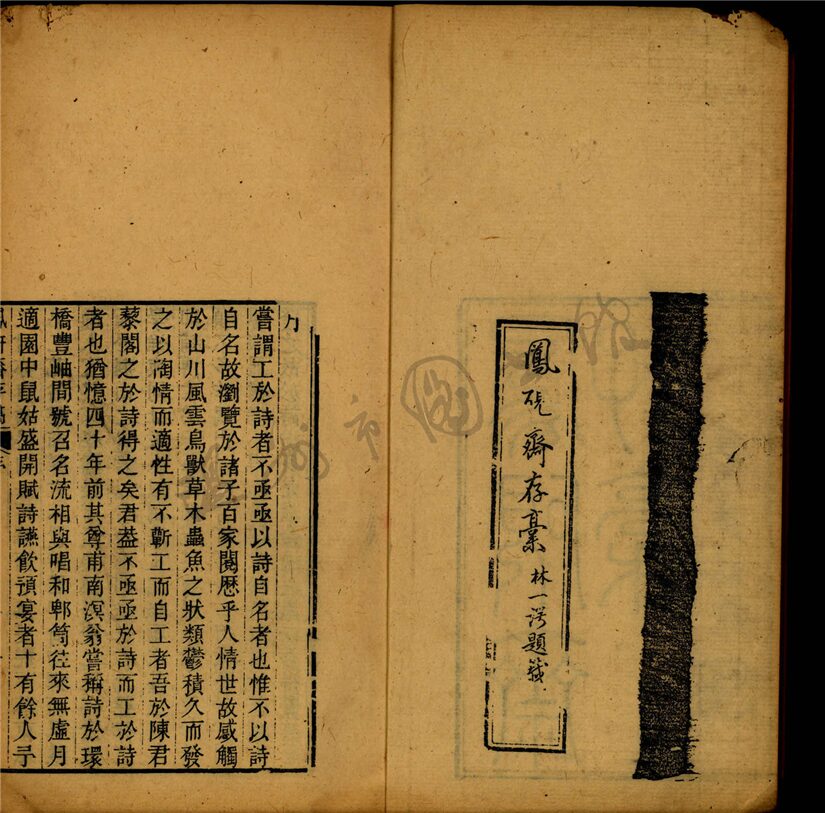 鳳硯齋存稾 林一諤題籤
序
嘗謂工於詩者不亟亟以詩自名者也惟不以詩
自名故瀏覽於諸子百家閱歷乎人情世故感觸
於山川風雲鳥獸草木蟲魚之狀類鬱積久而發
之以陶情而適性有不蘄工而自工者吾於陳君
藜閣之於詩得之矣君葢不亟亟於詩而工於詩
者也猶憶四十年前其尊甫南溟翁嘗稱詩於環
橋豐岫間號召名流相與唱和郫筒徃來無虛月
適園中鼠姑盛開賦詩讌飲預宴者十有餘人予